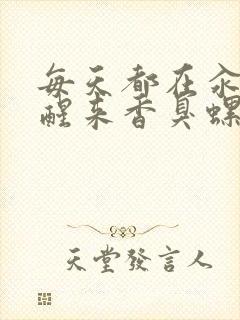 每天都在汆
醒来香臭螺
天堂發言人